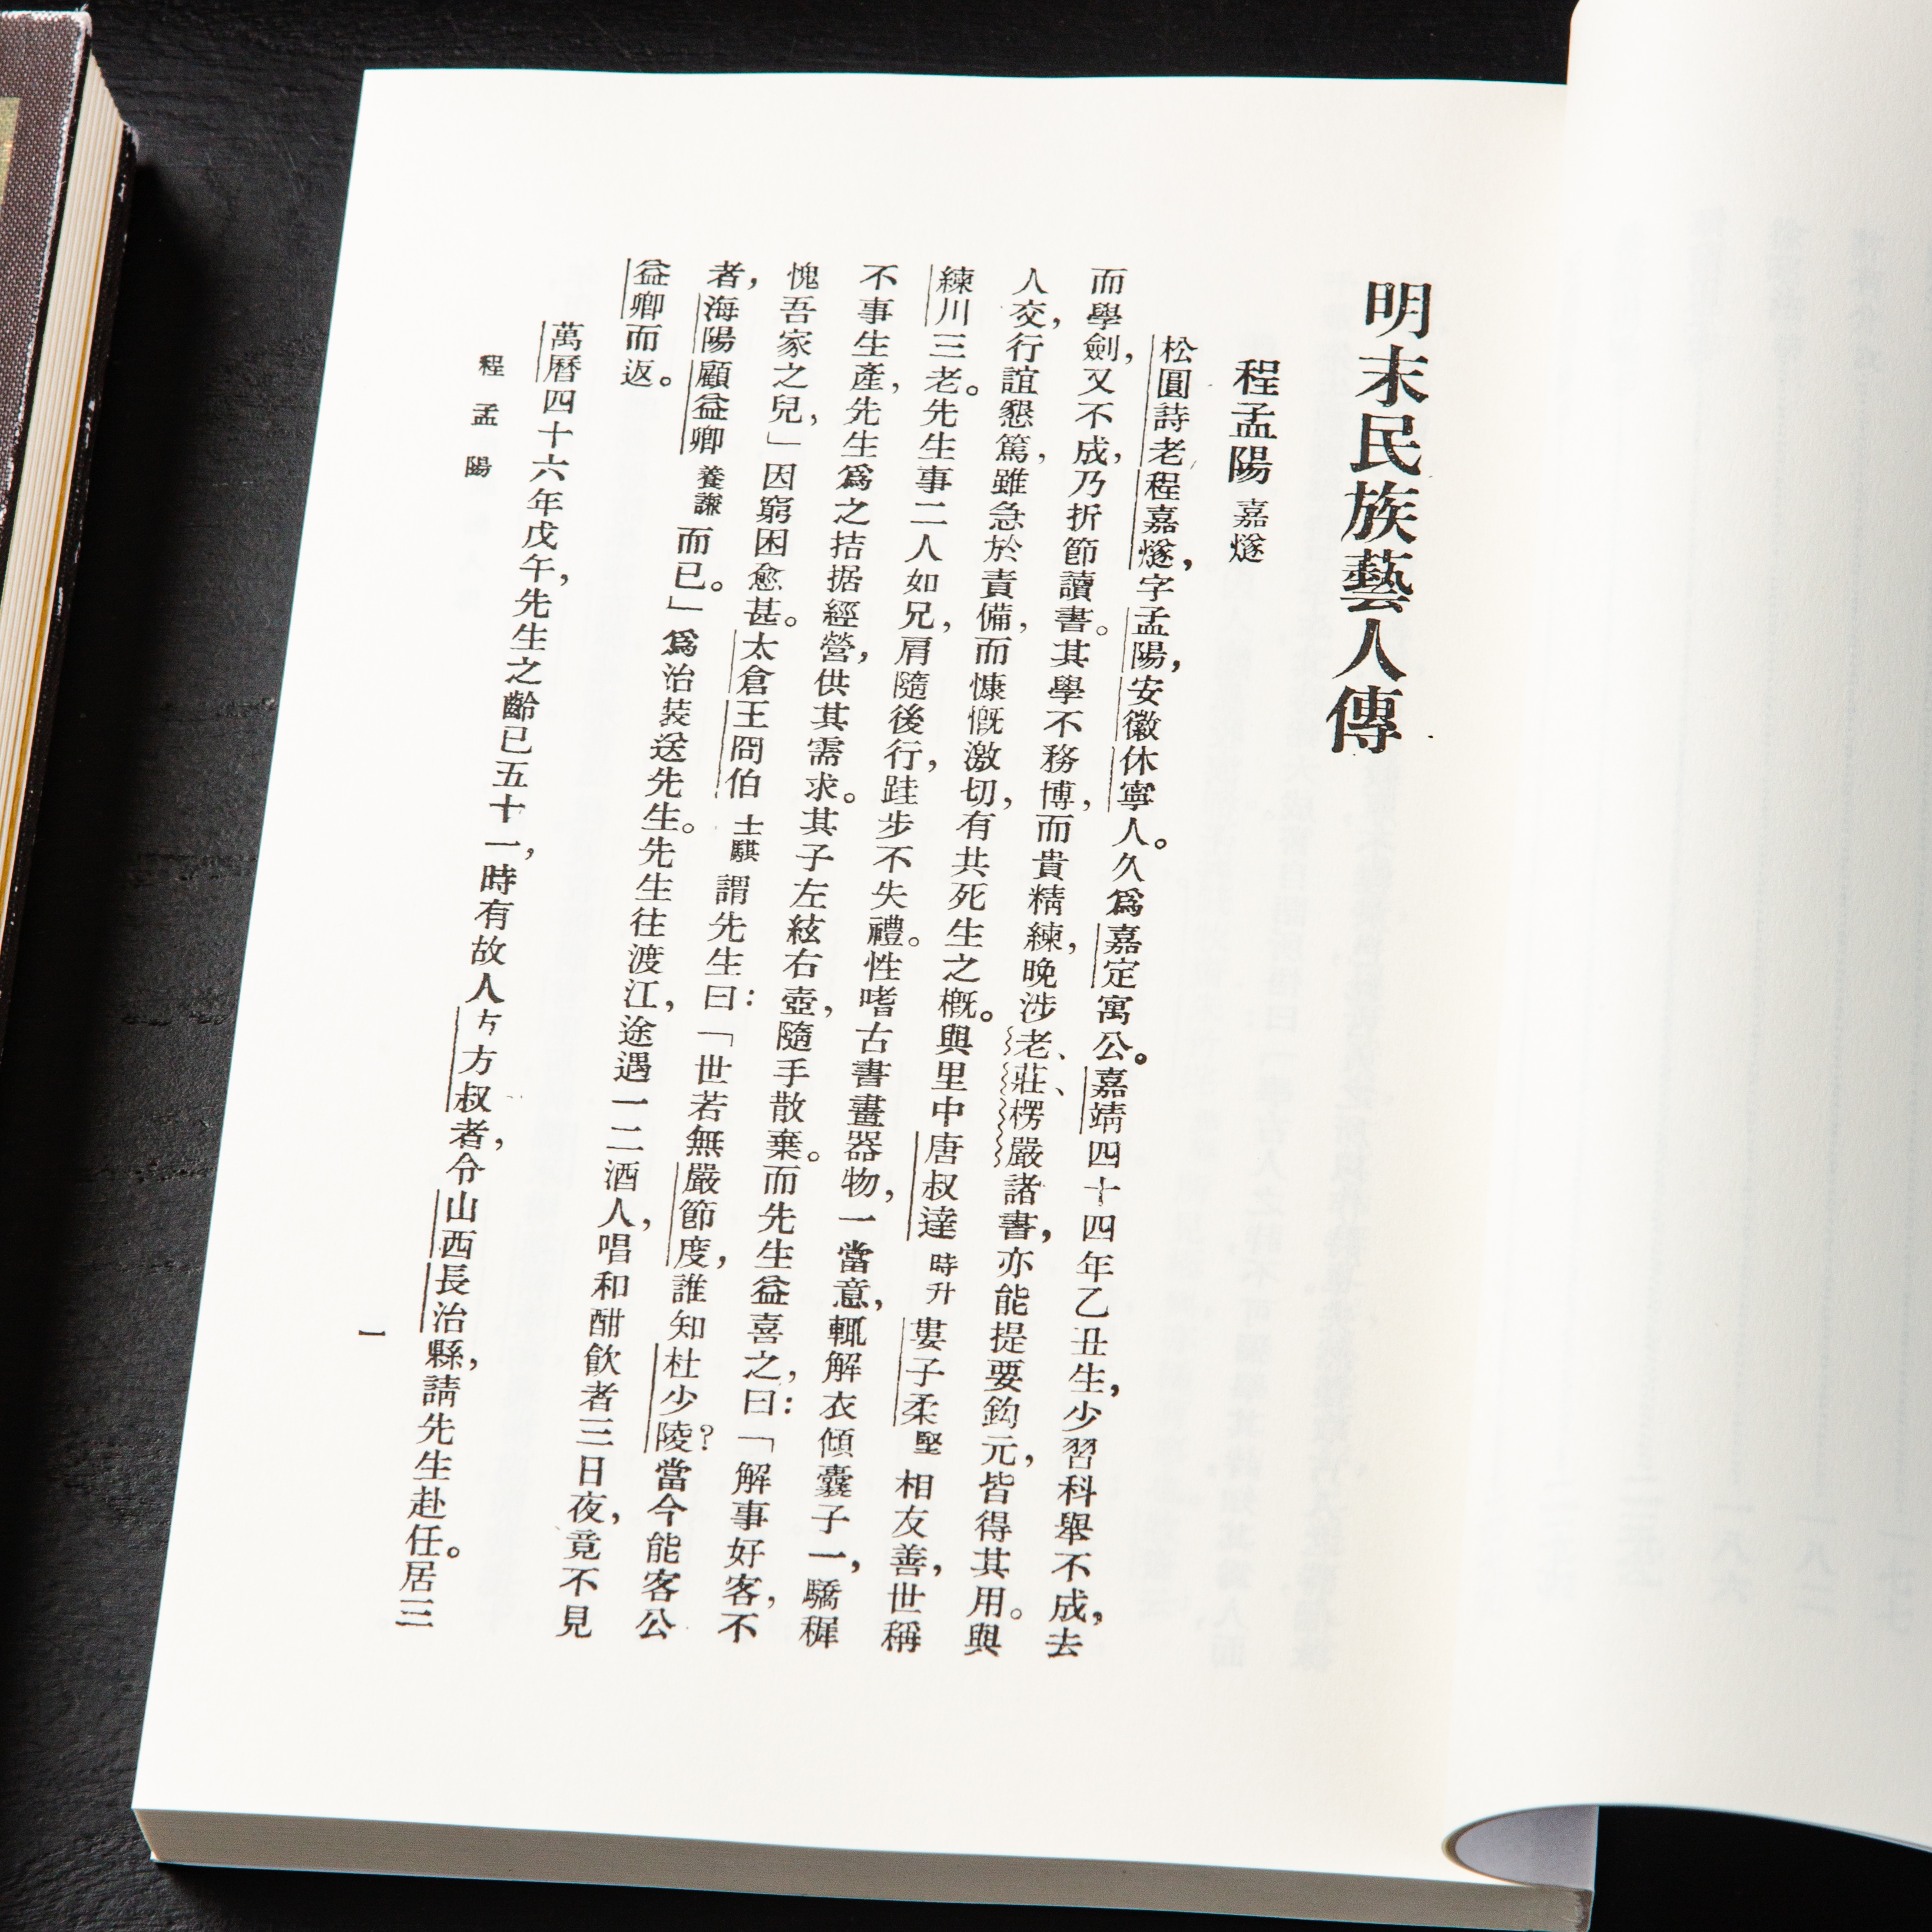 明末民族藝人傳
程孟陽 嘉燧
松圓詩老程嘉燧，字孟陽，安徽休寧人。久爲嘉定寓公。嘉靖四十四年乙丑生，少習科舉不成，去
而學劍，又不成，乃折節讀書。其學不務博，而貴精練，晚涉老、莊、楞嚴諸書，亦能提要鈎元，皆得其用。與
人交，行誼懇篤，雖急於責備，而慷慨激切，有共死生之概。與里中唐叔達 時升 婁子柔 堅 相友善，世稱
練川三老。先生事二人如兄，肩隨後行，跬步不失禮。性嗜古書畫器物，一當意，輒解衣傾囊予一，驕穉
不事生產，先生爲之拮据經營，供其需求。其子左絃右壺，隨手散棄。而先生益喜之，曰：「解事好客，不
愧吾家之兒，」因窮困愈甚。太倉王冏伯 士騏 謂先生曰：「世若無嚴節度，誰知杜少陵？當今能客公
者，海陽顧益卿 養謙 而已。」爲治裝送先生。先生往渡江，途遇一二酒人，唱和酣飲者三日夜，竟不見
益卿而返。
萬曆四十六年戊午，先生之齡已五十一，時有故人方方叔者，令山西長治縣，請先生赴任。居三
程孟陽
一